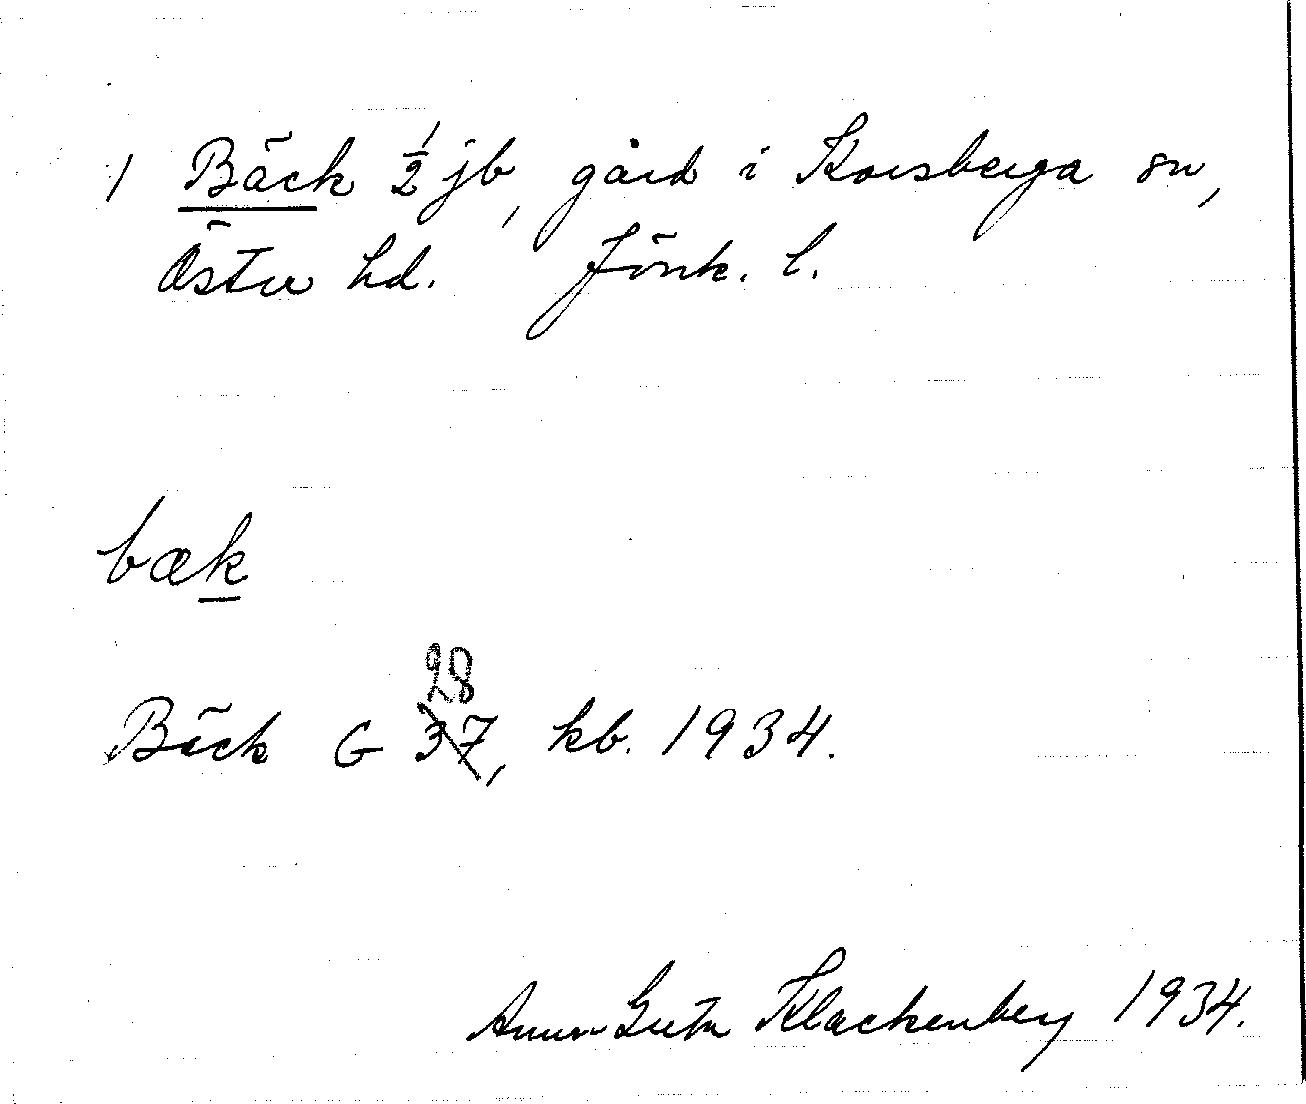 1 Bäck ½ jb, gård i Korsberga sn,
Östra hd. Jönk. l.
bæk
Bäck G 28 37, kb. 1934.
Anna Greta Klackenberg 1934.